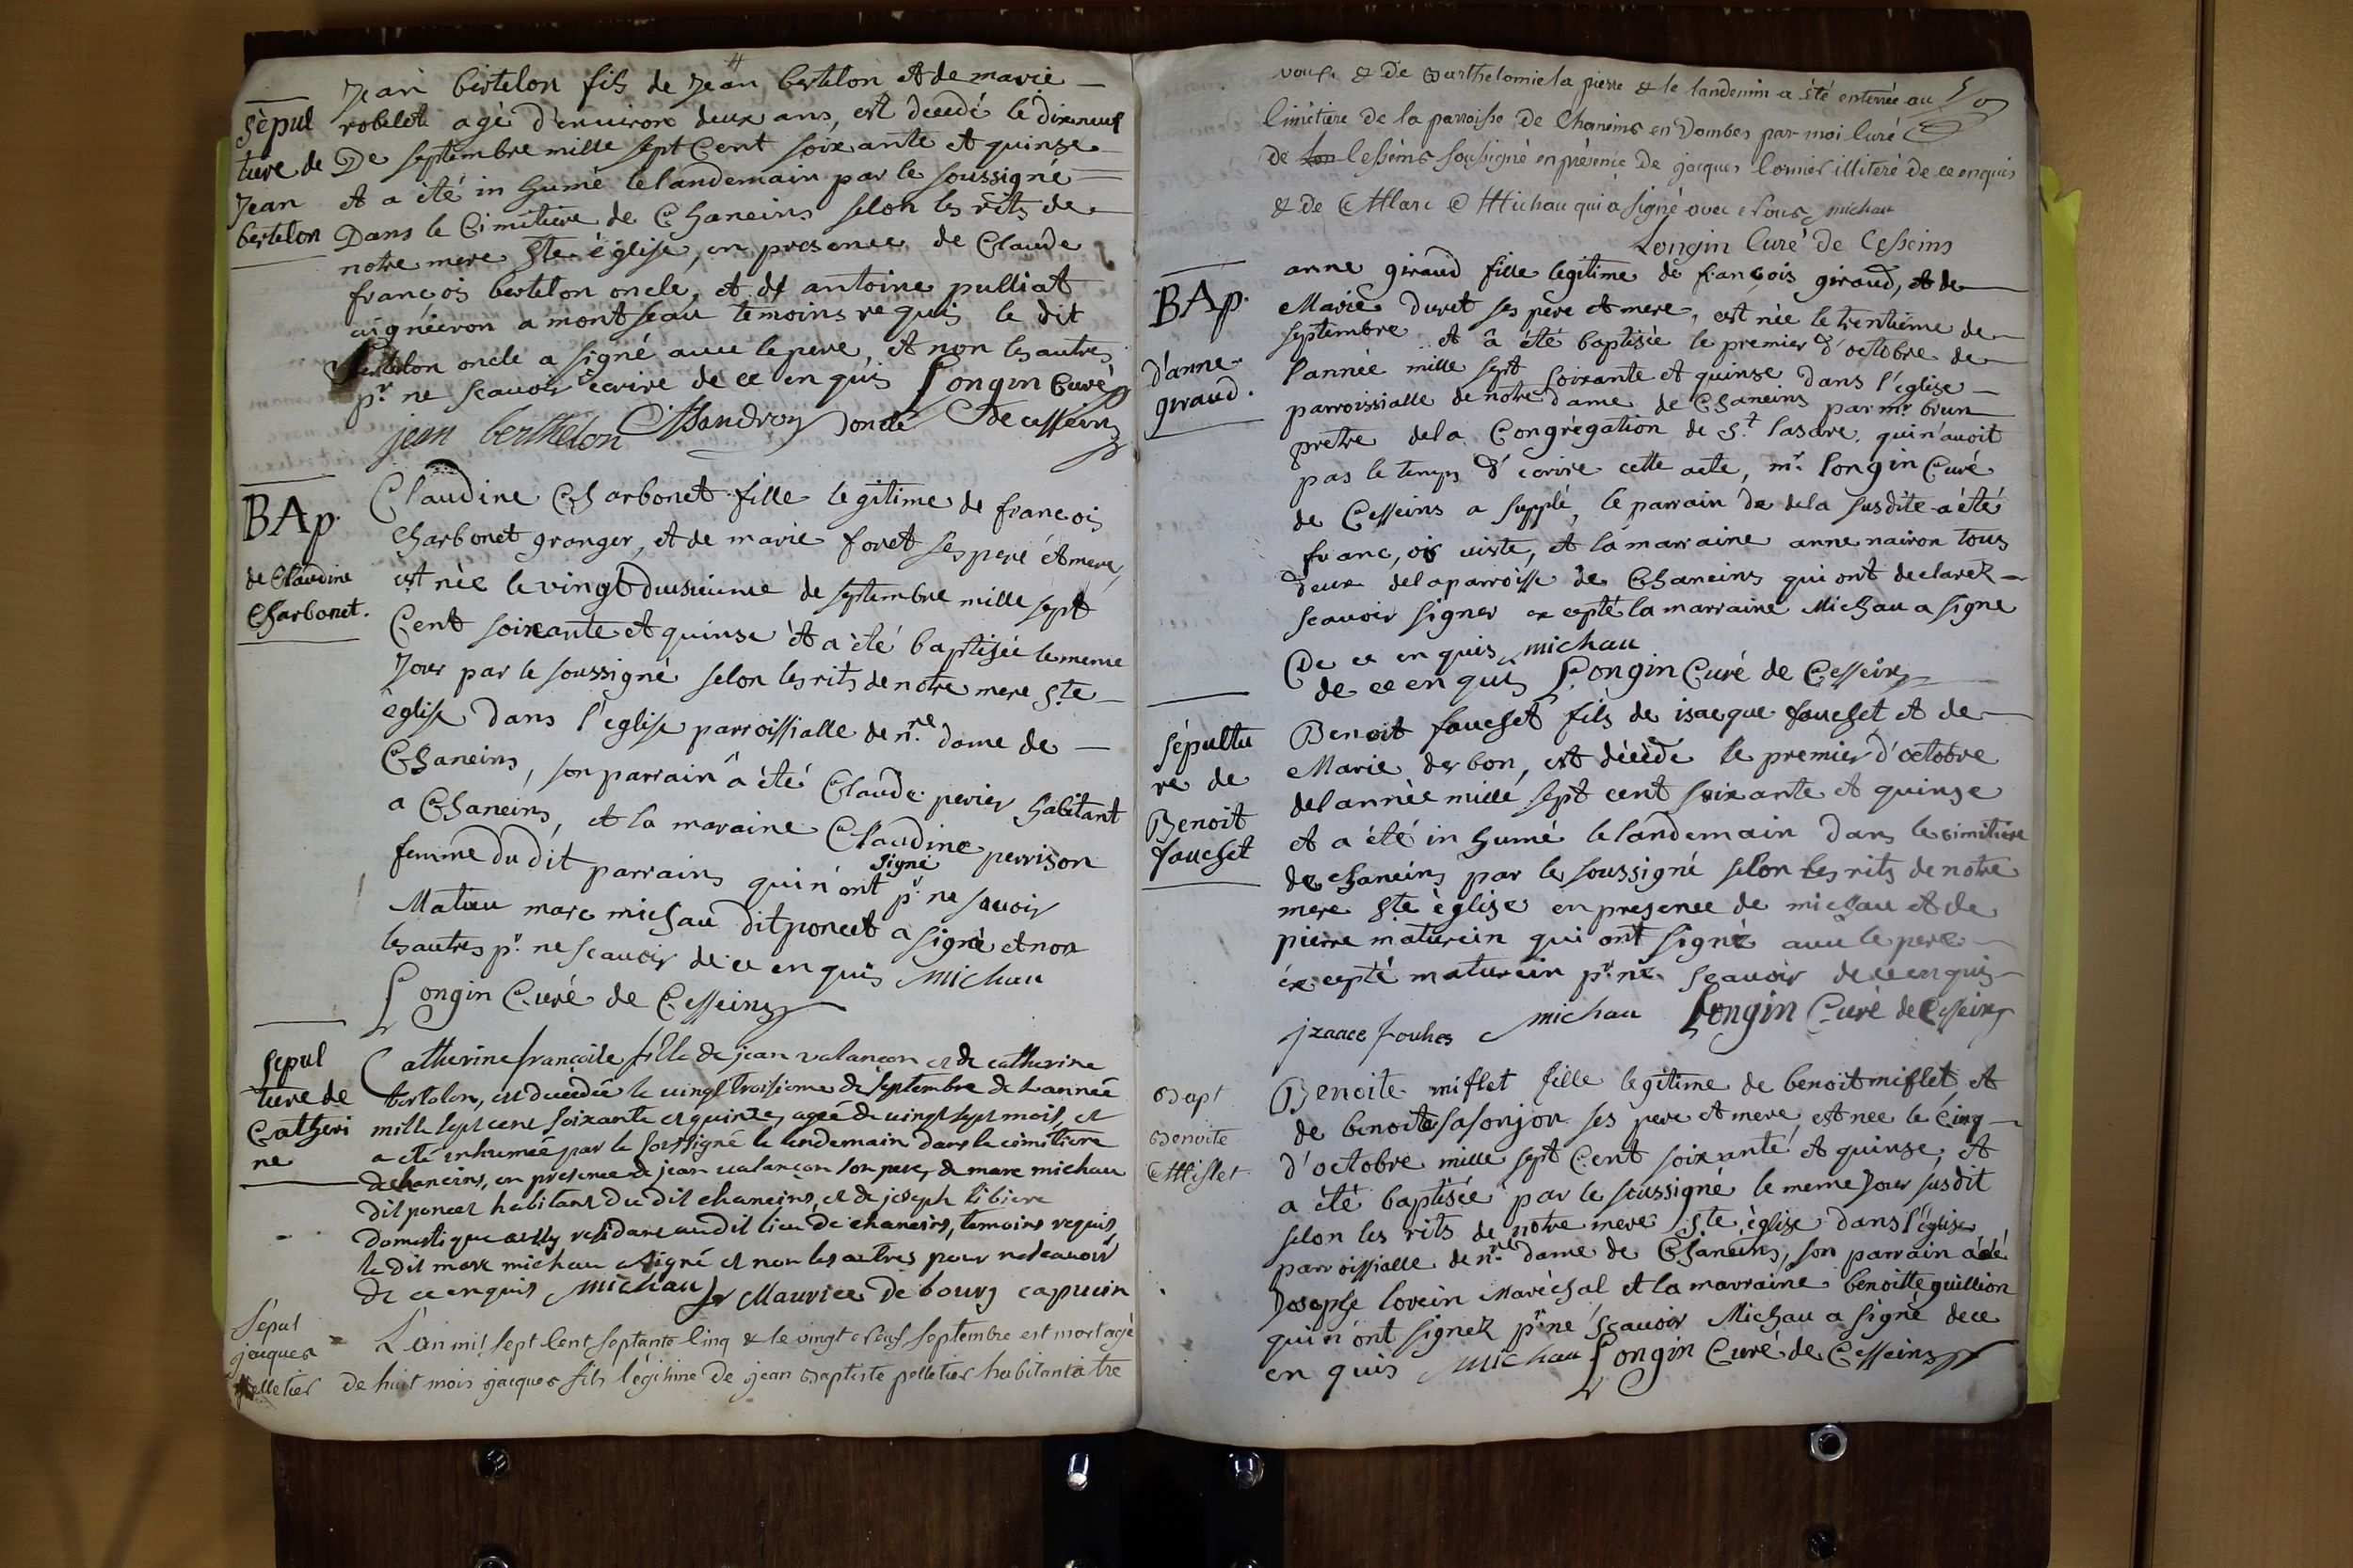 4
Jean bertelon fils de Jean bertelon et de marie
robelet agé d'environ deux ans, est decedé le dixneuf
De septembre mille sept Cent soixante et quinse
et a été in humé le landemain par le soussigné
Dans le Cimitiere de Chaneins selon les rits de
notre mere Ste église, en presence de Claude
françois bertelon oncle, et de antoine pulliat
vigneron a montseau temoins requis le dit
bertelon oncle a signé avec le pere, et non les autres
pr. ne scauoir écrire de ce en quis Longin Curé
jean berthelon oncle de cesseins
sépul
ture de
Jean
bertelon
BAp.
de Claudine
Charbonet.
Claudine Charbonet fille legitime de francois
Charbonet granger, et de marie foret ses pere et mere,
est née le vingt deusieume de septembre mille sept
Cent soixante et quinse et a été baptisée le meme
Jour par le soussigné selon les rits de notre mere ste
église dans l'eglise parroissialle de n.re dame de
Chaneins, son parrain a été Claude perier habitant
a Chaneins, et la maraine Claudine perrison
femme du dit parrains qui n'ont signé pr. ne sauoir
Matieu marc michau dit poncet a signé et non
les autres pr. ne scauoir de ce en quis michau
Longin Curé de Cesseins
sepul
ture de
Catheri
ne
Catherine francoise fille de jean valançon et de catherine
bertolon, est decedée le vingt troisieme de septembre de l'année
mille sept cent soixante et quinze, ageé de vingt sept mois, et
a eté inhumée par le soussigné le lendemain dans le cimitiere
de chaneins, en presence de jean valançon son pere, de marc michau
dit poncet habitant du dit chaneins, et de joseph tibiere
domestique aussy residant au dit lieu de chaneins, temoins requis
le dit marc michau a signé et non les autres pour ne scauoir
de ce enquis michau fr Maurice de bourg capucin
Sépul
jacques
pelletier
L'an mil sept Cent septante Cinq & le vingt neuf septembre est mort agé
de huit mois jacques fils légitime de jean Baptiste pelletier habitant a tre
5
voux & De Barthelomie la pierre & le landemin a été enterrée au
Cimétiere de la parroisse De Chaneins en Dombes par moi Curé
de Cesseins soussigné en présence De jacques Cornier illiteré de ce enquis
& de Marc Michau qui a signé avec nous michau
Longin Curé De Cesseins
BAp.
d'anne
giraud.
anne giraud fille legitime de francois giraud, et de
Marie duret ses pere et mere, est née le trentiême de
septembre et a été baptisée le premier d'octobre de
l'année mille sept soixante et quinse dans l'église
parroissialle de notre dame de Chaneins par mr brun
pretre dela Congrégation de St. Lasare. qui n'auoit
pas le temps d'écrire cette acte, mr. Longin Curé
de Cesseins a supplé, le parrain de dela susdite a été
franc,ois viste, et la marraine anne nairon tous
deux dela parroisse de Chaneins qui ont declarez
scauoir signer excepté la marraine Michau a signe
De ce en quis michau
de ce en quis Longin Curé de Cesseins
sépultu
re de
Benoit
fouchet
Benoit fouchet fils de isacque fouchet et de
Marie derbon, est décédé le premier d'octobre
del année mille sept cent soixante et quinze
et a été in humé le landemain dans le cimitiere
de chaneins par le soussigné selon les rits de notre
mere Ste église en presence de michau et de
pierre maturcin qui ont signé avec le pere
éxcepté maturcin pr. ne scauoir de ce en quis
jzaace fouhes michau Longin Curé de Cesseins
Bapt
Benoite
Miflet
Benoite miflet fille legitime de benoit miflet, et
de benoite sasonjon ses pere et mere, est nee le cinq
d'octobre mille sept Cent soixante et quinse, et
a été baptisée par le soussigné le meme jour susdit
selon les rits de notre mere ste église dans l'église
parroissialle de n.re dame de Chaneins, son parrain a été
Josephe lorcin Maréchal et la marraine benoitte quillion
qui n'ont signez pr. ne scauoir Michau a signé de ce
en quis michau Longin Curé de Cesseins